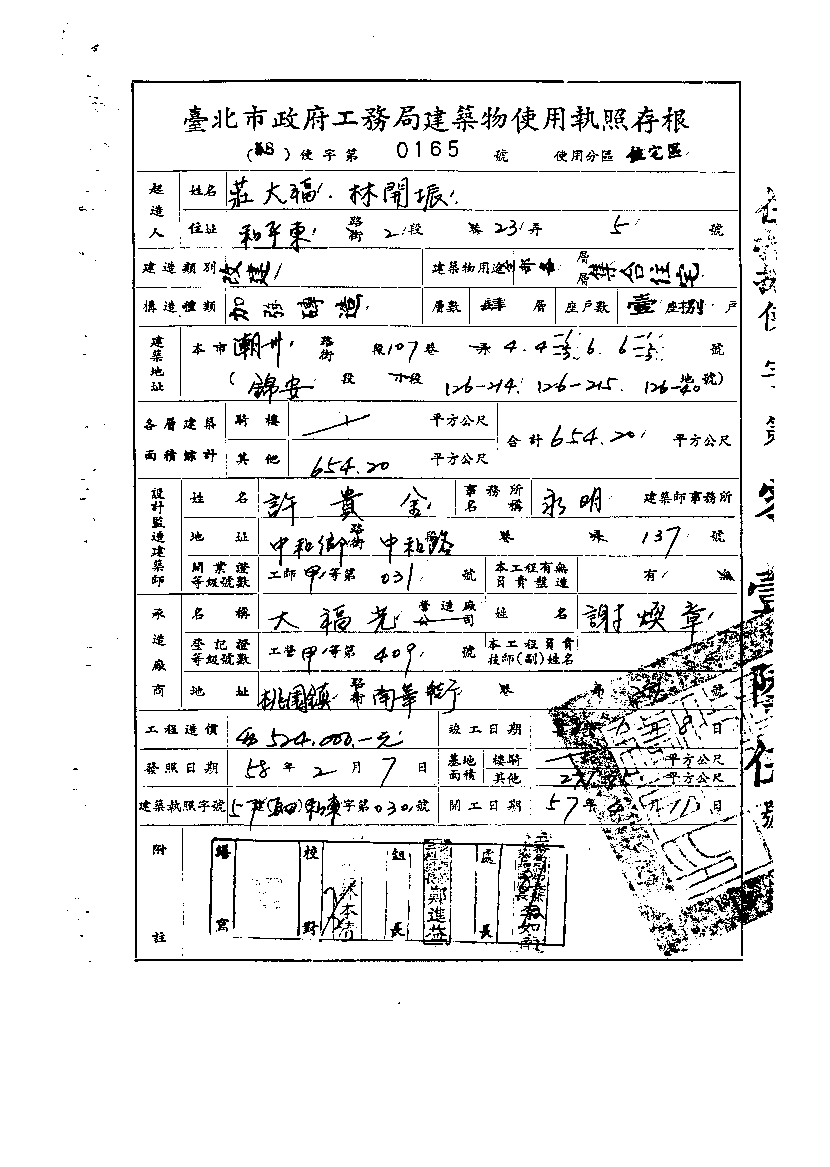 臺北市政府工務局建築物使用執照存根
(58)使字第 0165 號 使用分區 住宅區
起造人 姓名 莊大福．林開振
住址 和平東 路街 2段 巷 23弄 5 號
建造類別 改建 建築物用途 層層 集合住宅
構造種類 加強磚造 層數 肆 層 座戶數 壹座捌戶
建築地址 本市 潮州 路街 段107巷 弄 4. 6. 號
(錦安 段 小段 126-214. 126-215. 地號)
各層建築面積總計 騎樓 平方公尺 合計 654.20 平方公尺
其他 654.20 平方公尺
設計監造建築師 姓名 許貴金 事務所名稱 永明 建築師事務所
地址 中和鄉 路街 中和路 巷 弄 137 號
開業證等級號數 工師甲等第 031 號 本工程有無負責監造 有 無
承造廠商 名稱 大福光 營造廠公司 姓名 謝煥章
登記證等級號數 工營甲等第 409 號 本工程負責技師(副)姓名
地址 桃園鎮 路街 南華街 巷 號
工程造價 524,000.-元 竣工日期 月8日
發照日期 58年2月7日 基地面積 樓騎 平方公尺
其他 平方公尺
建築執照字號 字第030號 開工日期 57年 月11日
附註 繕寫 校對 組長 鄭進益 處長